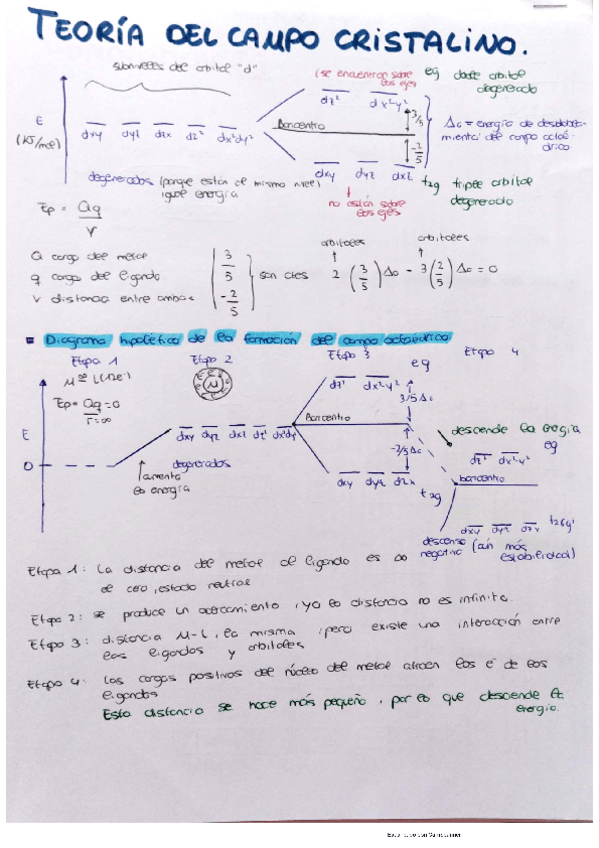 TEORÍA DEL CAMPO CRISTALINO.
subniveles del orbital "d"
(se encuentran sobre los ejes
eg doble orbital degenerado
dz² dx²y²
E
(KJ/mol)
dxy dyz dzx dz² dx²dy²
Baricentro
3/5
-2/5
Δo = energía de desdoblamiento del campo octaédrico.
dxy dyz dxz
t2g triple orbital degenerado
degenerados (porque están al mismo nivel)
igual energía
no están sobre los ejes
Ep = Qq / r
Q carga del metal
q carga del ligando
r distancia entre ambas
3/5
-2/5
son ctes
orbitales
orbitales
2 (3/5) Δo - 3 (2/5) Δo = 0
Diagrama hipotético de la formación del campo octaédrico
Etapa 1
Etapa 2
Etapa 3
Etapa 4
Ep = Qq = 0
r = ∞
M
eg
dz² dx²y²
3/5 Δo
Baricentro
E
0
dxy dyz dxz dz² dx²dy²
degenerados
aumenta la energía
-2/5 Δo
dxy dyz dzx
t2g
desciende la energía
eg
dz² dx²y²
baricentro
dxy dyz dzx t2g
descenso negativo (aún más estabilidad)
Etapa 1: La distancia del metal al ligando es ∞
de cero, estado neutral
Etapa 2: se produce un acercamiento, ya la distancia no es infinita.
Etapa 3: distancia M-L, la misma, pero existe una interacción entre
los ligandos y orbitales
Etapa 4: las cargas positivas del núcleo del metal atraen los e⁻ de los
ligandos
Esta distancia se hace más pequeña, por lo que desciende la
energía.